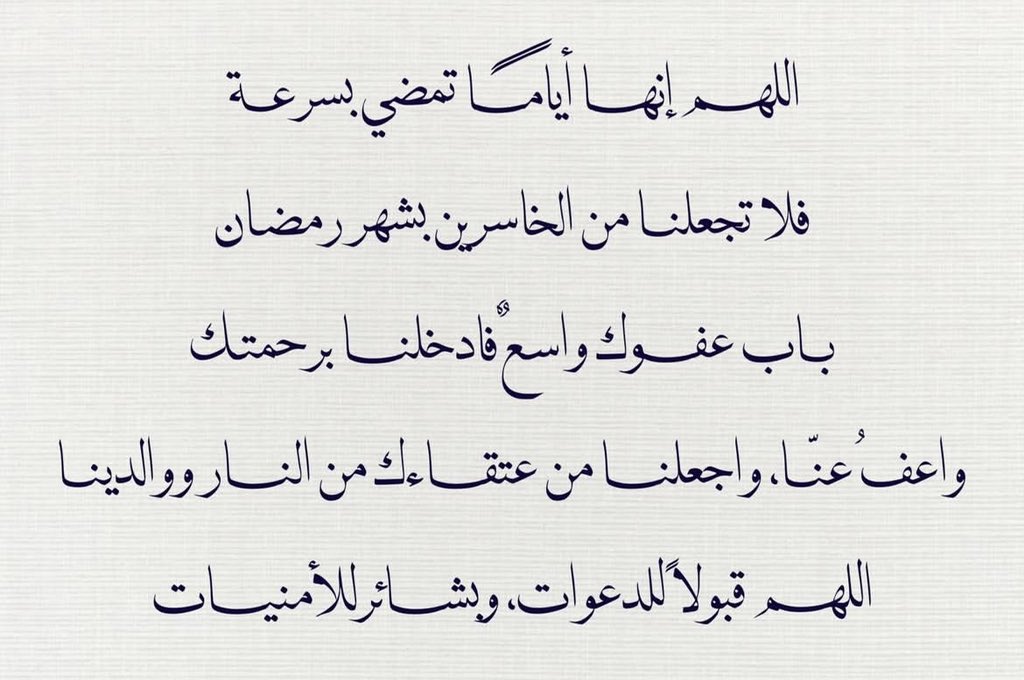 اللهم إنها أيامًا تمضي بسرعة
فلا تجعلنا من الخاسرين بشهر رمضان
باب عفوك واسعٌ فادخلنا برحمتك
واعفُ عنّا، واجعلنا من عتقاءك من النار ووالدينا
اللهم قبولاً للدعوات، وبشائر للأمنيات